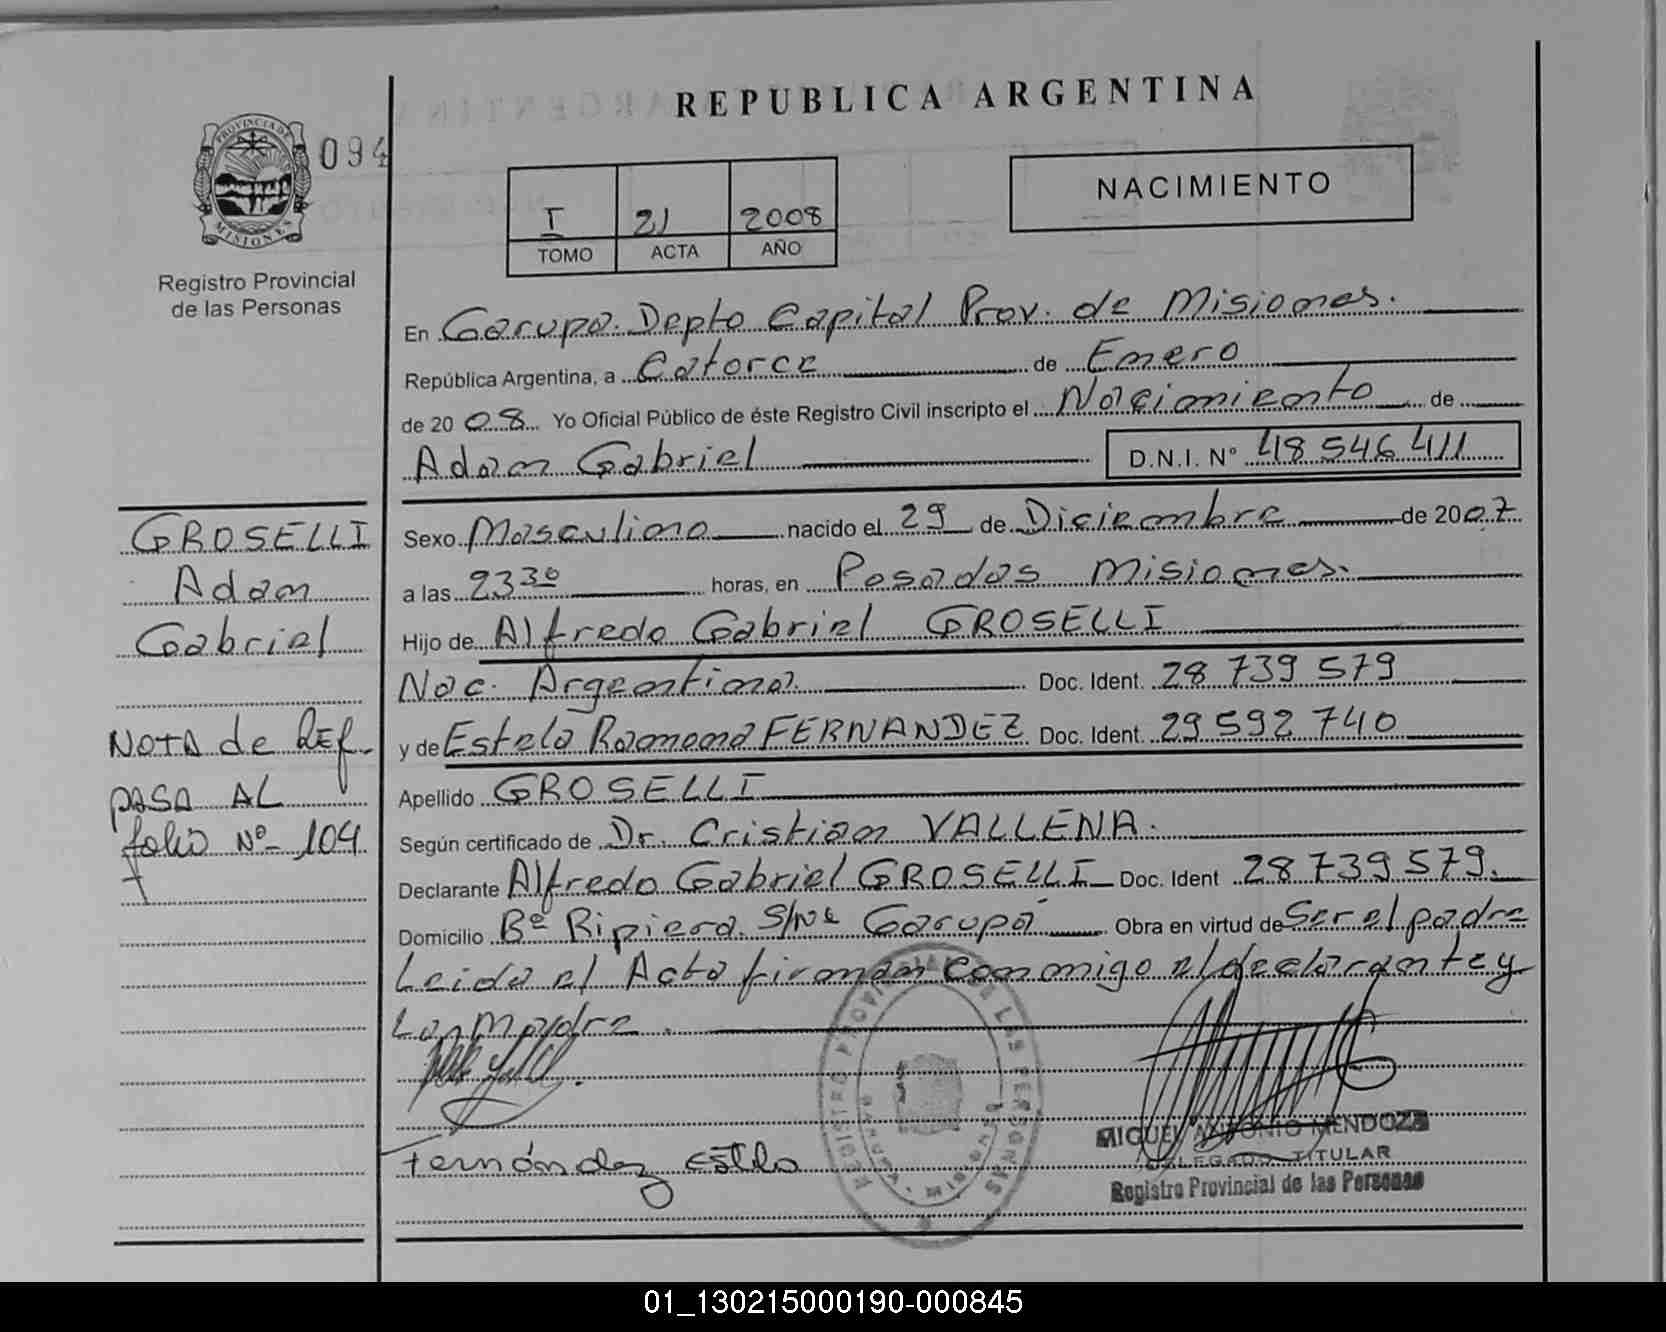 REPUBLICA ARGENTINA
PROVINCIA DE
MISIONES
094
Registro Provincial
de las Personas
I 21 2008
TOMO ACTA AÑO
NACIMIENTO
En Garupa. Depto Capital Prov. de Misiones.
República Argentina, a Catorce de Enero
de 2008 Yo Oficial Público de éste Registro Civil inscripto el Nacimiento de
Adan Gabriel D.N.I. N° 48 546 411
Sexo Masculino nacido el 29 de Diciembre de 2007
a las 23 30 horas, en Posadas Misiones.
Hijo de Alfredo Gabriel GROSELLI
Nac. Argentina. Doc. Ident. 28 739 579
y de Estela Ramona FERNANDEZ Doc. Ident. 29 592 740
Apellido GROSELLI
Según certificado de Dr. Cristian VALLENA.
Declarante Alfredo Gabriel GROSELLI Doc. Ident 28 739 579.
Domicilio Bº Ripiera S/Nº Garupa Obra en virtud de Ser el padre
Leida el Acta firman conmigo el declarante y
La Madre.
Fernández Estela
GROSELLI
Adan
Gabriel
NOTA de REF.
PASA AL
folio Nº 104
REGISTRO PROVINCIAL DE LAS PERSONAS
MIGUEL ANTONIO MENDOZA
DELEGADO TITULAR
Registro Provincial de las Personas
01_130215000190-000845